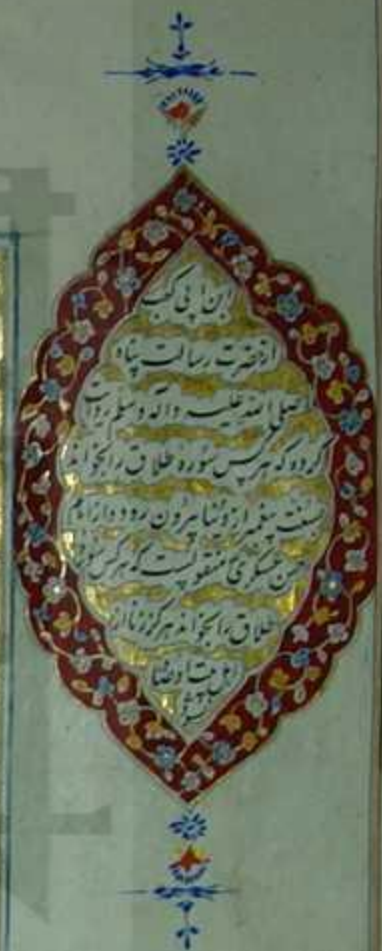 ابن ابی کعب
از حضرت رسالت پناه
صلی الله علیه و آله وسلم روایت
کرده که هر کس سوره طلاق را بخواند
بسنت پیغمبر از دنیا بیرون رود و از امام
حسن عسکری منقولست که هر کس سوره
طلاق را بخواند هرگز زنا از
اهل